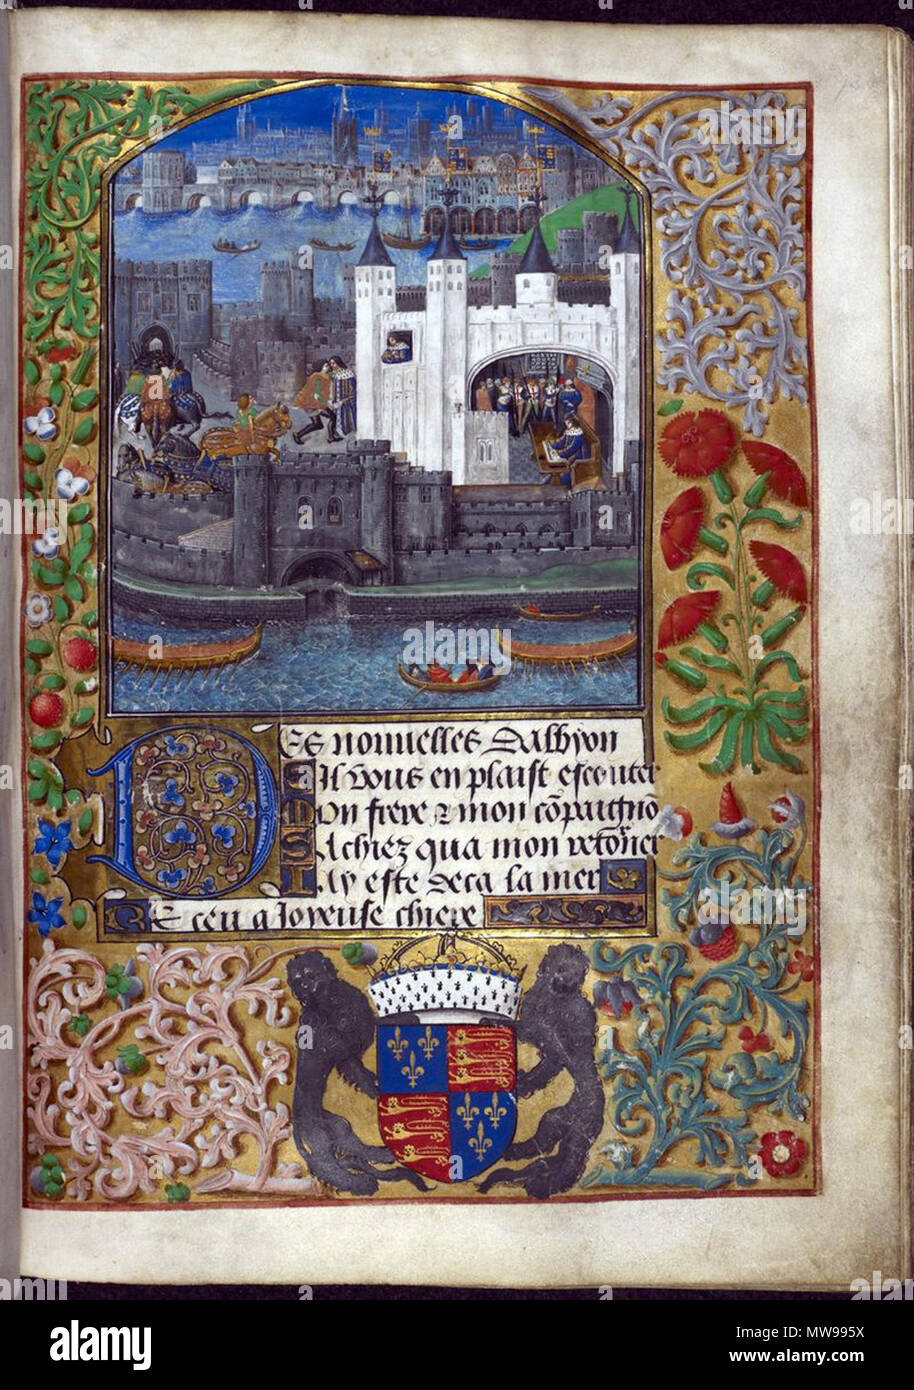 Des nouuelles dalbyon
Sil vous en plaist escouter
Mon frere & mon cõpaignõ
Sachiez qua mon retor̃ner
Jay este deca la mer
Receu a Joyeuse chiere
alamy
Image ID: MW995X
www.alamy.com